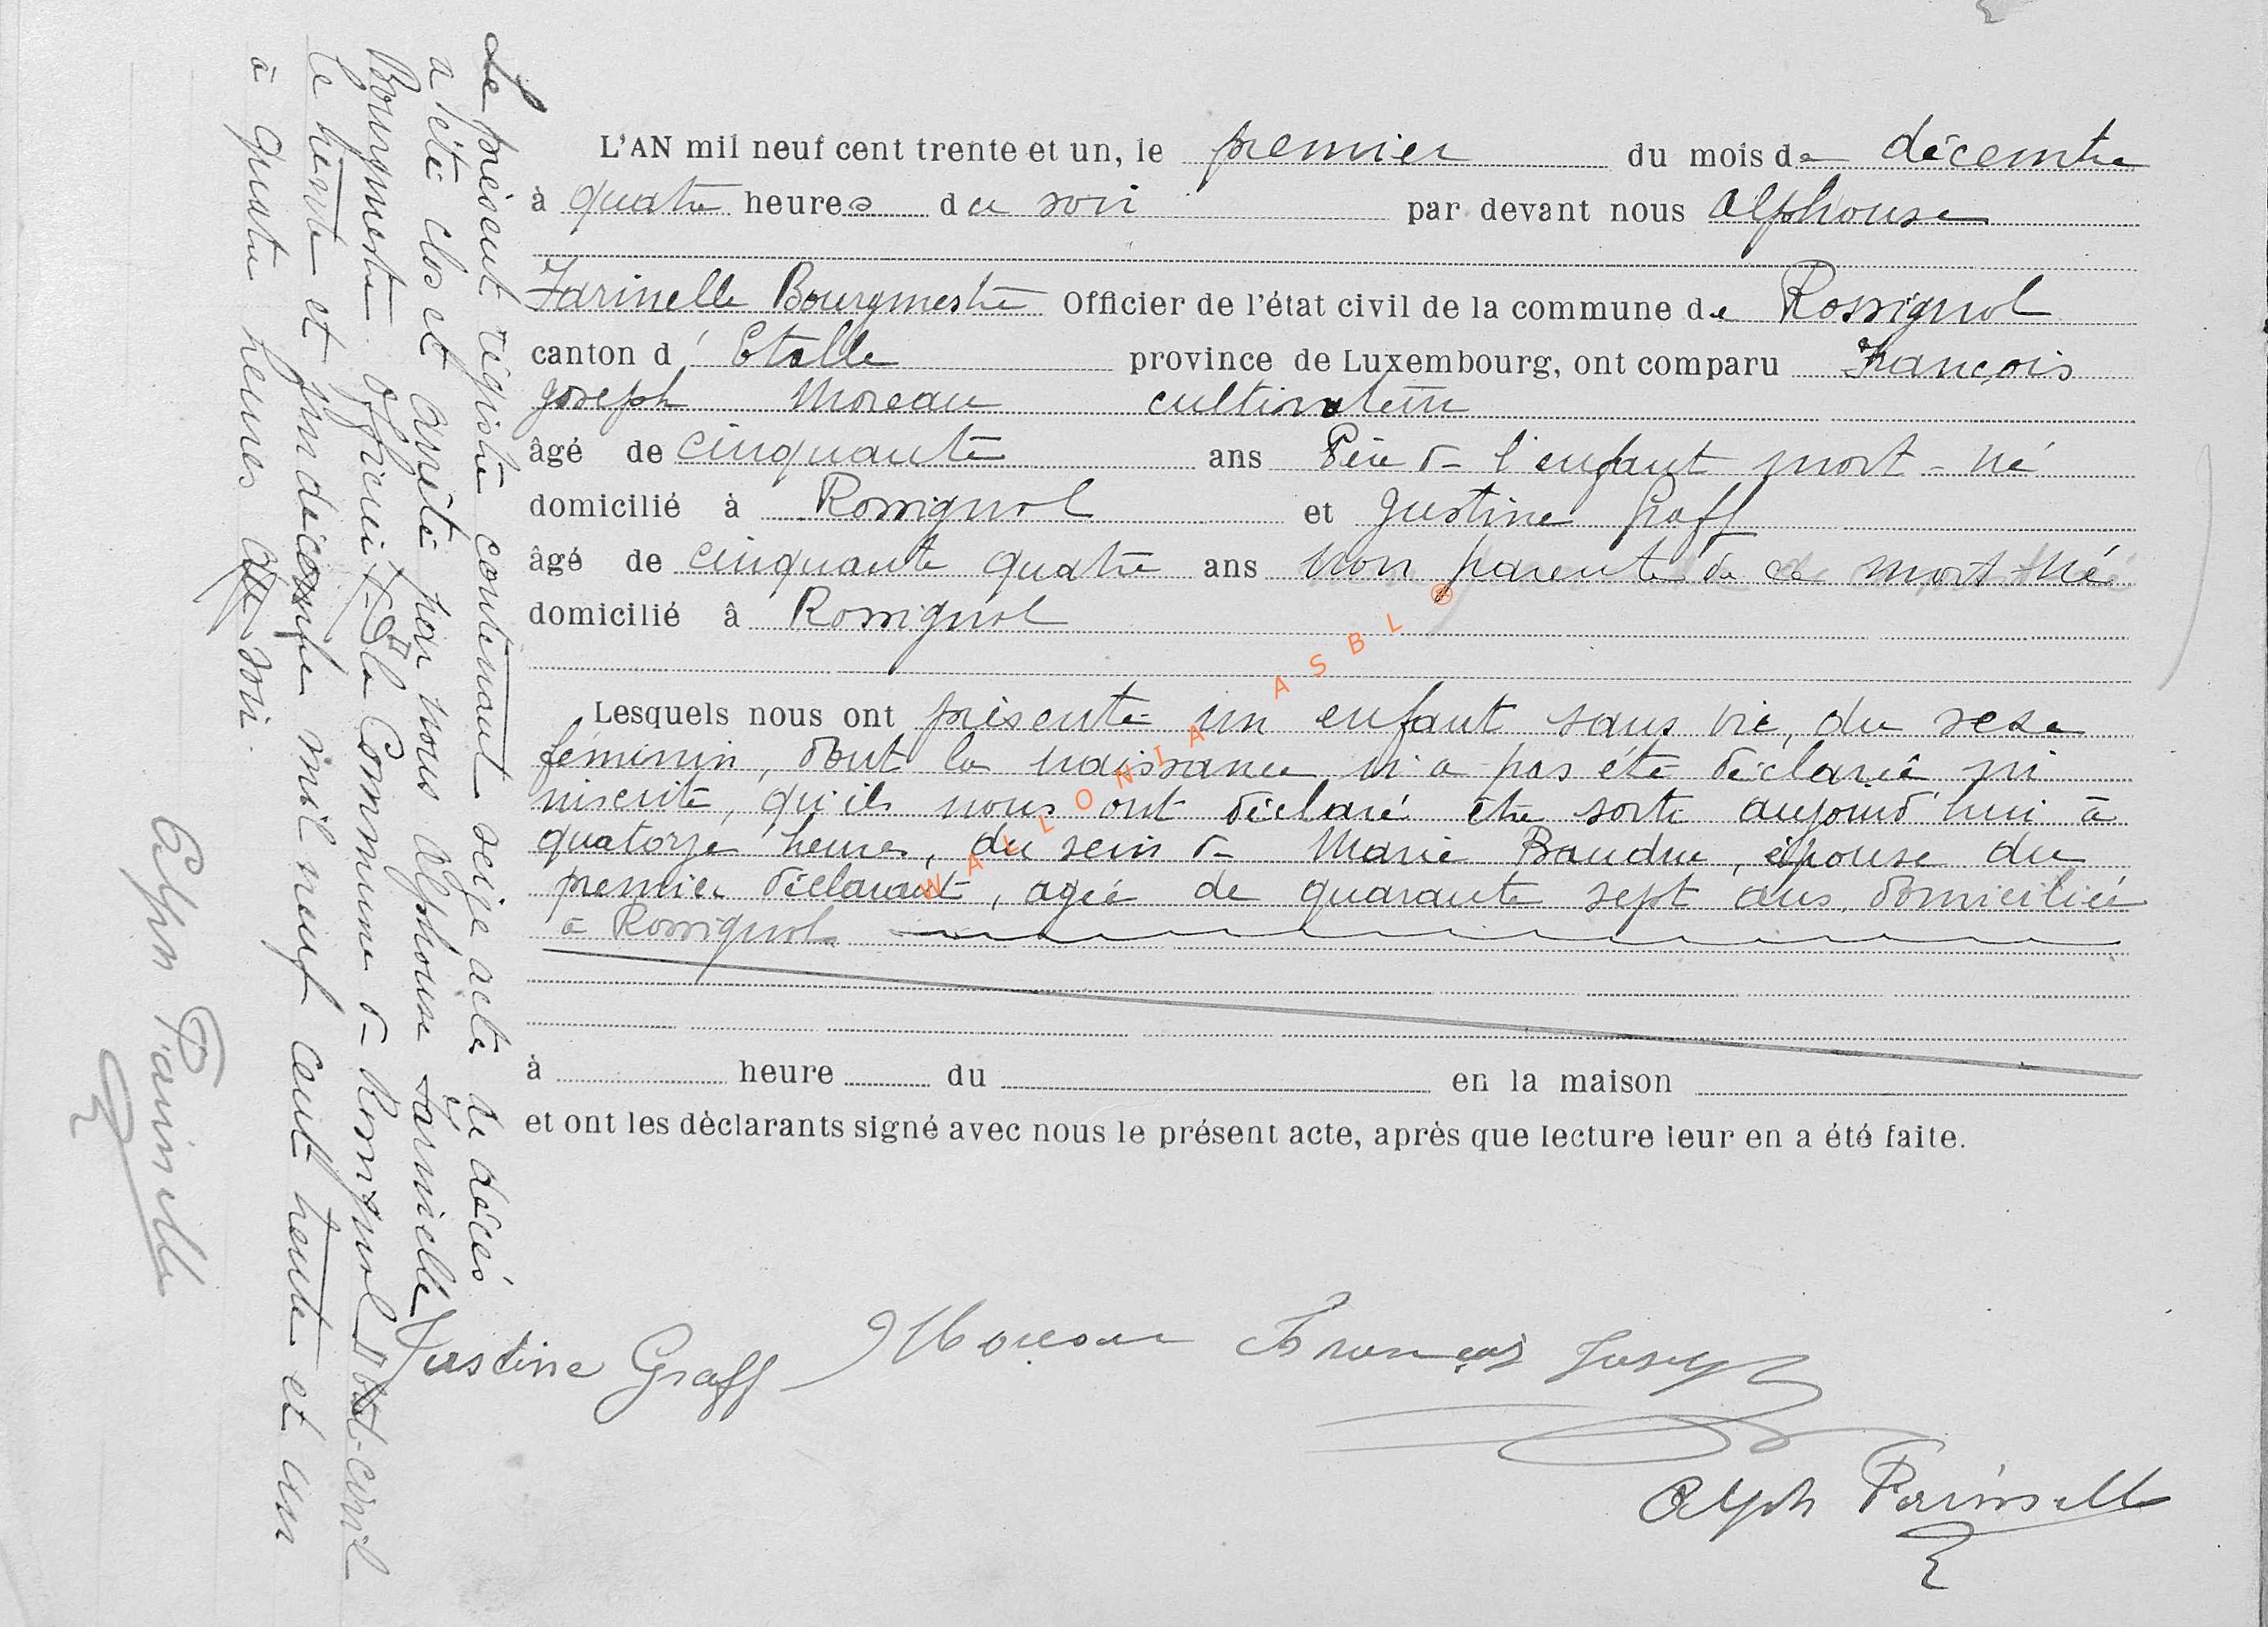 L'AN mil neuf cent trente et un, le premier du mois de décembre
à quatre heures du soir par devant nous Alphonse
Farinelle Bourgmestre Officier de l'état civil de la commune de Rossignol
canton d' Etalle province de Luxembourg, ont comparu François
Joseph Moreau cultivateur
âgé de cinquante ans Père de l'enfant mort-né
domicilié à Rossignol et Justine Graff
âgé de cinquante quatre ans non parente de ce mort né
domicilié à Rossignol
Lesquels nous ont présenté un enfant sans vie, du sexe
féminin, dont la naissance n'a pas été déclarée ni
inscrite, qu'ils nous ont déclaré être sorti aujourd'hui à
quatorze heures, du sein de Marie Baudru, épouse du
premier déclarant, agée de quarante sept ans, domiciliée
à Rossignol
à heure du en la maison
et ont les déclarants signé avec nous le présent acte, après que lecture leur en a été faite.
Justine Graff Moreau François Joseph
Alph Farinelle
Le présent registre contenant seize actes de décès
a été clos et arrêté par nous Alphonse Farinelle
Bourgmestre officier de la Commune de Rossignol
le trente et un décembre mil neuf cent trente et un
à quatre heures du soir.
Alph Farinelle
WALLONIA ASBL ®